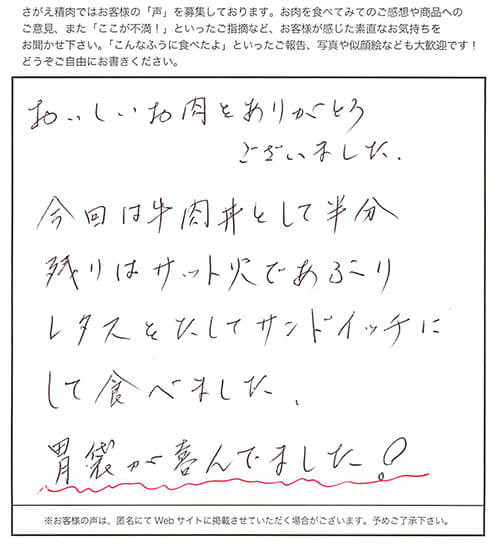 さがえ精肉ではお客様の「声」を募集しております。お肉を食べてみてのご感想や商品への
ご意見、また「ここが不満！」といったご指摘など、お客様が感じた素直なお気持ちを
お聞かせ下さい。「こんなふうに食べたよ」といったご報告、写真や似顔絵なども大歓迎です！
どうぞご自由にお書きください。
おいしいお肉をありがとう
ございました.
今回は牛肉丼として半分
残りはサット火であぶり
レタスをたしてサンドイッチに
して食べました.
胃袋が喜んでました!
※お客様の声は、匿名にてWebサイトに掲載させていただく場合がございます。予めご了承下さい。